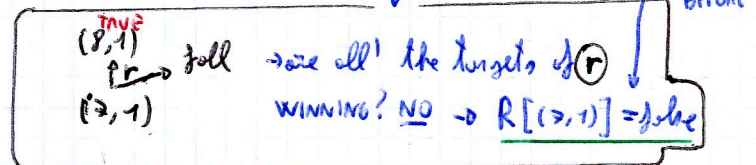 BEFORE
TRUE
(8,1)
↑r → fall → are all the targets of r
(7,1) WINNING? NO → R[(7,1)] = false